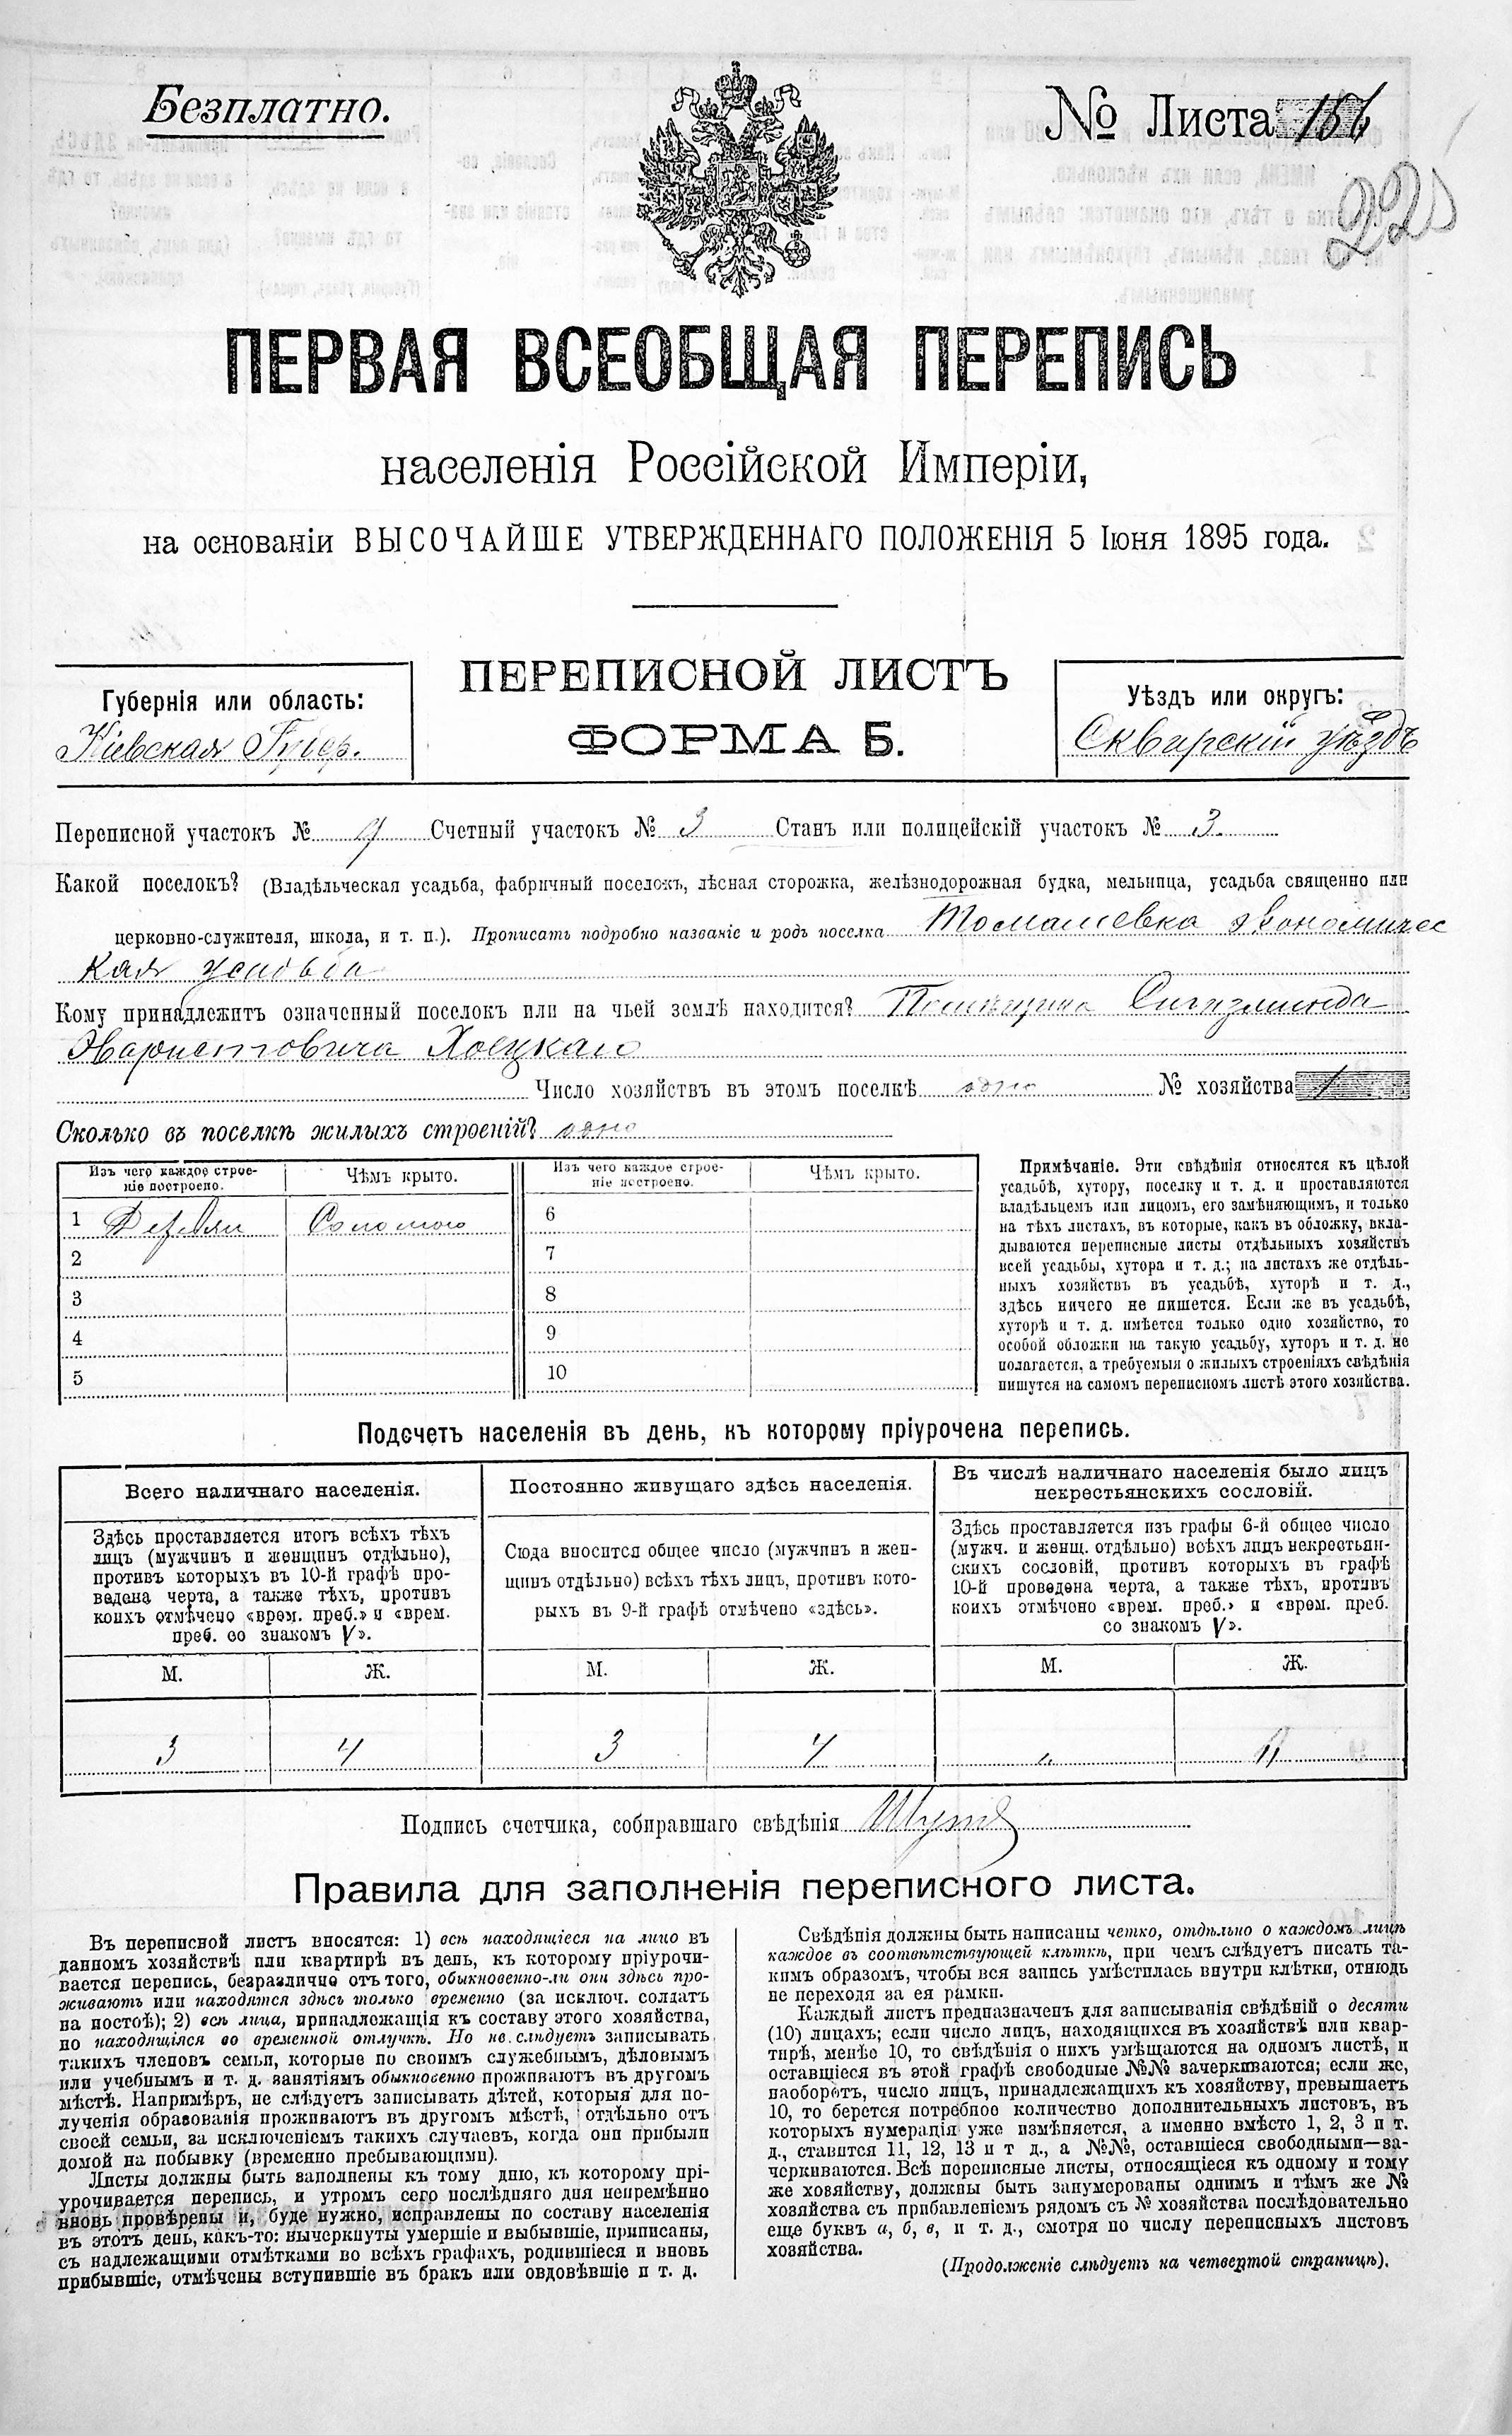 Безплатно.
№ Листа
225
ПЕРВАЯ ВСЕОБЩАЯ ПЕРЕПИСЬ
населенія Россійской Имперіи,
на основаніи ВЫСОЧАЙШЕ УТВЕРЖДЕННАГО ПОЛОЖЕНІЯ 5 Іюня 1895 года.
ПЕРЕПИСНОЙ ЛИСТЪ
ФОРМА Б.
Губернія или область:
Кіевская Губер.
Уѣздъ или округъ:
Сквирскій уѣздъ
Переписной участокъ № Счетный участокъ № 3 Станъ или полицейскій участокъ № 3.
Какой поселокъ? (Владѣльческая усадьба, фабричный поселокъ, лѣсная сторожка, желѣзнодорожная будка, мельница, усадьба священно или
церковно-служителя, школа, и т. п.). Прописать подробно названіе и родъ поселка Томашевка экономичес
кая усадьба
Кому принадлежитъ означенный поселокъ или на чьей землѣ находится? Помѣщика Сигизмунда
Эваристовича Хоецкаго
Число хозяйствъ въ этомъ поселкѣ одно № хозяйства 1
Сколько въ поселкѣ жилыхъ строеній? одно
Изъ чего каждое строе-
ніе построено.
Чѣмъ крыто.
Изъ чего каждое строе-
ніе построено.
Чѣмъ крыто.
1 Дерѣвян Соломою 6
2 7
3 8
4 9
5 10
Примѣчаніе. Эти свѣдѣнія относятся къ цѣлой
усадьбѣ, хутору, поселку и т. д. и проставляются
владѣльцемъ или лицомъ, его замѣняющимъ, и только
на тѣхъ листахъ, въ которые, какъ въ обложку, вкла-
дываются переписные листы отдѣльныхъ хозяйствъ
всей усадьбы, хутора и т. д.; на листахъ же отдѣль-
ныхъ хозяйствъ въ усадьбѣ, хуторѣ и т. д.,
здѣсь ничего не пишется. Если же въ усадьбѣ,
хуторѣ и т. д. имѣется только одно хозяйство, то
особой обложки на такую усадьбу, хуторъ и т. д. не
полагается, а требуемыя о жилыхъ строеніяхъ свѣдѣнія
пишутся на самомъ переписномъ листѣ этого хозяйства.
Подсчетъ населенія въ день, къ которому пріурочена перепись.
Всего наличнаго населенія.
Здѣсь проставляется итогъ всѣхъ тѣхъ
лицъ (мужчинъ и женщинъ отдѣльно),
противъ которыхъ въ 10-й графѣ про-
ведена черта, а также тѣхъ, противъ
коихъ отмѣчено «врем. преб.» и «врем.
преб. со знакомъ V».
Постоянно живущаго здѣсь населенія.
Сюда вносится общее число (мужчинъ и жен-
щинъ отдѣльно) всѣхъ тѣхъ лицъ, противъ кото-
рыхъ въ 9-й графѣ отмѣчено «здѣсь».
Въ числѣ наличнаго населенія было лицъ
некрестьянскихъ сословій.
Здѣсь проставляется изъ графы 6-й общее число
(мужч. и женщ. отдѣльно) всѣхъ лицъ некрестьян-
скихъ сословій, противъ которыхъ въ графѣ
10-й проведена черта, а также тѣхъ, противъ
коихъ отмѣчено «врем. преб.» и «врем. преб.
со знакомъ V».
М. Ж. М. Ж. М. Ж.
3 4 3 4
Подпись счетчика, собиравшаго свѣдѣнія
Правила для заполненія переписного листа.
Въ переписной листъ вносятся: 1) всѣ находящіеся на лицо въ
данномъ хозяйствѣ или квартирѣ въ день, къ которому пріурочи-
вается перепись, безразлично отъ того, обыкновенно-ли они здѣсь про-
живаютъ или находятся здѣсь только временно (за исключ. солдатъ
на постоѣ); 2) всѣ лица, принадлежащія къ составу этого хозяйства,
но находящіяся во временной отлучкѣ. Но не слѣдуетъ записывать
такихъ членовъ семьи, которые по своимъ служебнымъ, дѣловымъ
или учебнымъ и т. д. занятіямъ обыкновенно проживаютъ въ другомъ
мѣстѣ. Напримѣръ, не слѣдуетъ записывать дѣтей, которыя для по-
лученія образованія проживаютъ въ другомъ мѣстѣ, отдѣльно отъ
своей семьи, за исключеніемъ такихъ случаевъ, когда они прибыли
домой на побывку (временно пребывающими).
Листы должны быть заполнены къ тому дню, къ которому прі-
урочивается перепись, и утромъ сего послѣдняго дня непремѣнно
вновь провѣрены и, буде нужно, исправлены по составу населенія
въ этотъ день, какъ-то: вычеркнуты умершіе и выбывшіе, приписаны,
съ надлежащими отмѣтками во всѣхъ графахъ, родившіеся и вновь
прибывшіе, отмѣчены вступившіе въ бракъ или овдовѣвшіе и т. д.
Свѣдѣнія должны быть написаны четко, отдѣльно о каждомъ лицѣ
каждое въ соотвѣтствующей клѣткѣ, при чемъ слѣдуетъ писать та-
кимъ образомъ, чтобы вся запись умѣстилась внутри клѣтки, отнюдь
не переходя за ея рамки.
Каждый листъ предназначенъ для записыванія свѣдѣній о десяти
(10) лицахъ; если число лицъ, находящихся въ хозяйствѣ или квар-
тирѣ, менѣе 10, то свѣдѣнія о нихъ умѣщаются на одномъ листѣ, и
оставшіеся въ этой графѣ свободные №№ зачеркиваются; если же,
наоборотъ, число лицъ, принадлежащихъ къ хозяйству, превышаетъ
10, то берется потребное количество дополнительныхъ листовъ, въ
которыхъ нумерація уже измѣняется, а именно вмѣсто 1, 2, 3 и т.
д., ставится 11, 12, 13 и т д., а №№, оставшіеся свободными—за-
черкиваются. Всѣ переписные листы, относящіеся къ одному и тому
же хозяйству, должны быть занумерованы однимъ и тѣмъ же №
хозяйства съ прибавленіемъ рядомъ съ № хозяйства послѣдовательно
еще буквъ а, б, в, и т. д., смотря по числу переписныхъ листовъ
хозяйства.
(Продолженіе слѣдуетъ на четвертой страницѣ).